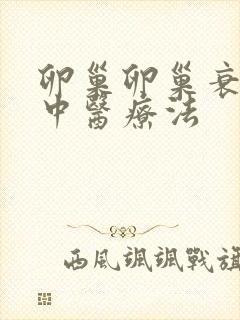 卵巢卵巢衰
中醫療法
西風颯颯戰旗